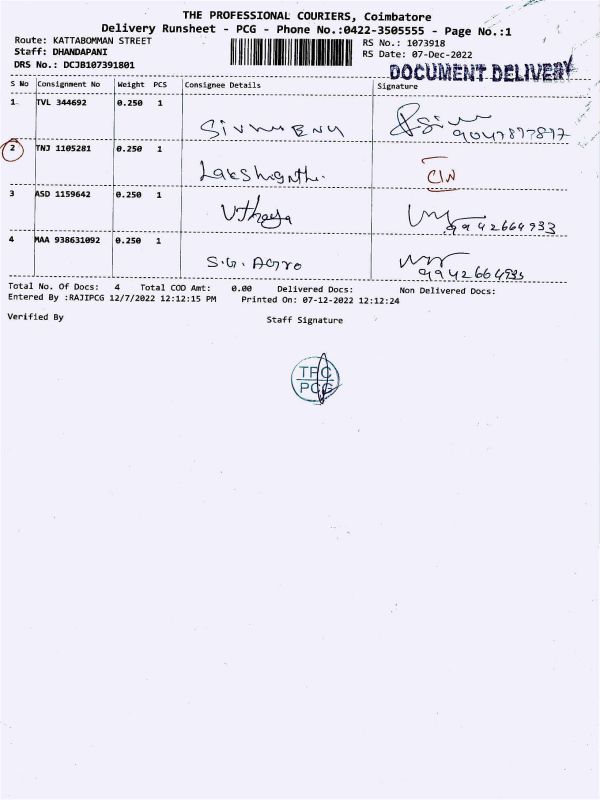 THE PROFESSIONAL COURIERS, Coimbatore
Delivery Runsheet - PCG - Phone No.:0422-3505555 - Page No.:1
Route: KATTABOMMAN STREET RS No.: 1073918
Staff: DHANDAPANI RS Date: 07-Dec-2022
DRS No.: DCJB107391801 DOCUMENT DELIVERY
S No Consignment No Weight PCS Consignee Details Signature
1 TVL 344692 0.250 1
9047897897
2 TNJ 1105281 0.250 1
CIN
3 ASD 1159642 0.250 1
Uthaya 9942664933
4 MAA 938631092 0.250 1
S.G. Agro 9942664933
Total No. Of Docs: 4 Total COD Amt: 0.00 Delivered Docs: Non Delivered Docs:
Entered By :RAJIPCG 12/7/2022 12:12:15 PM Printed On: 07-12-2022 12:12:24
Verified By Staff Signature
TPC
PCG